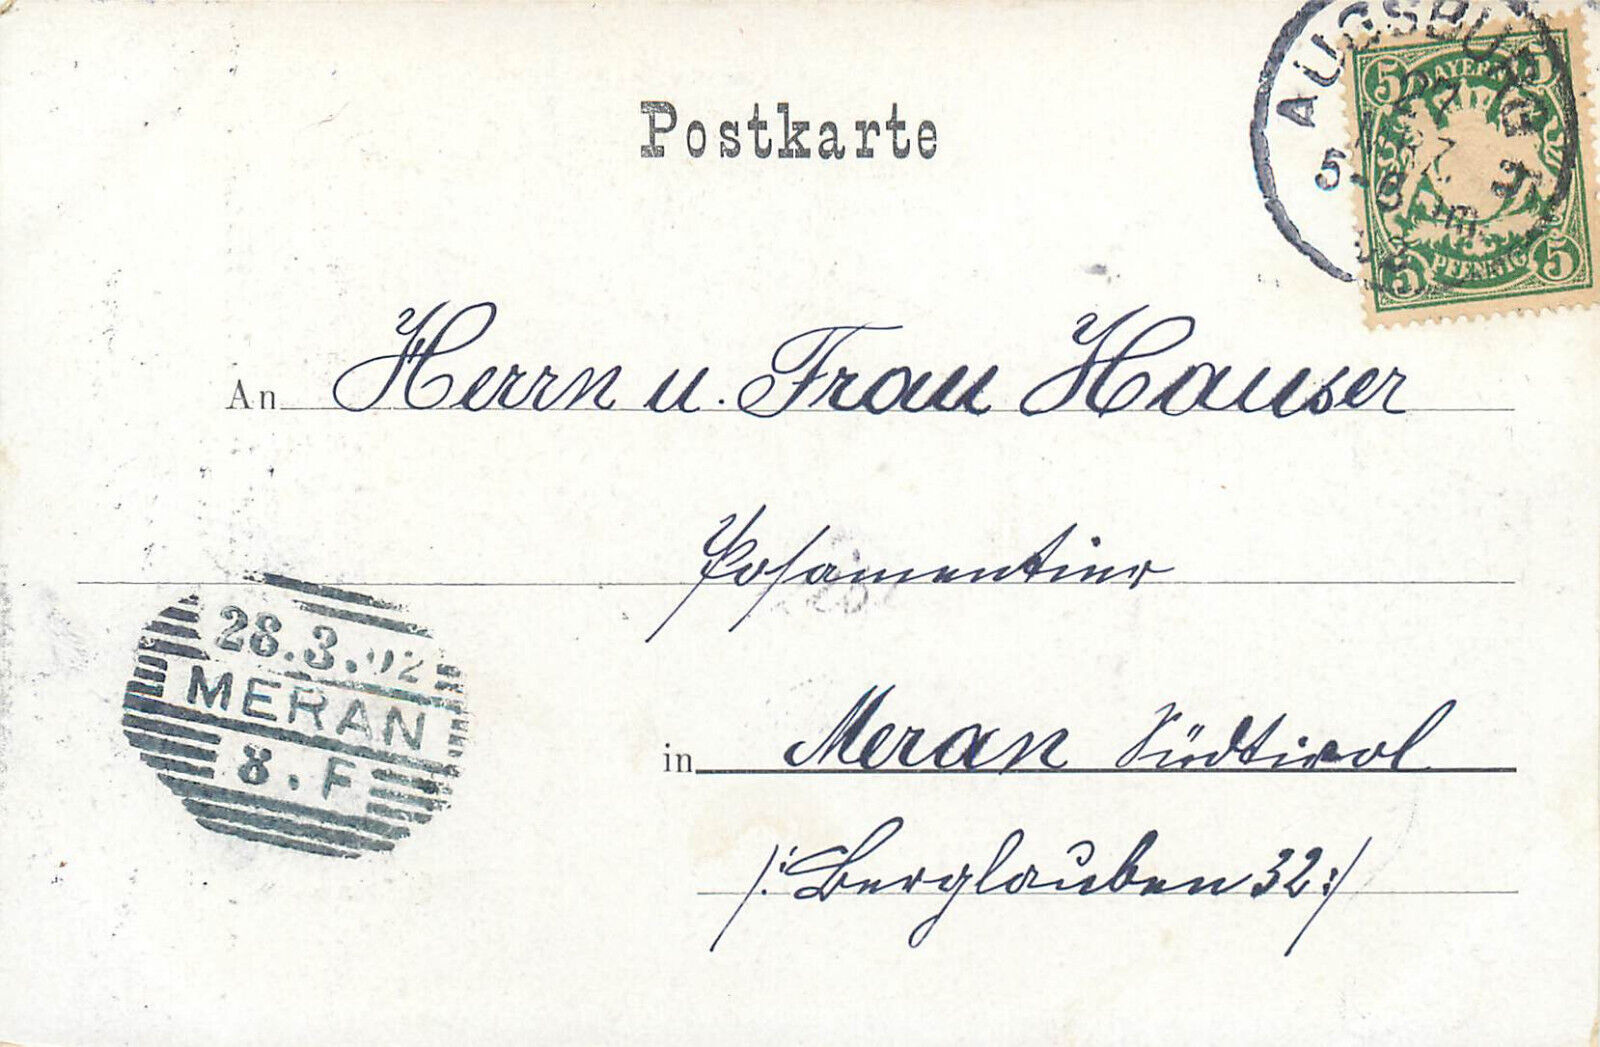 Postkarte
AUGSBURG
27
MRZ
5-6 Nm
02
5 BAYERN 5
5 PFENNIG 5
An Herrn u. Frau Hauser
Posamentier
28.3.02
MERAN
8.F
in Meran Südtirol
/: Berglauben 32 :/